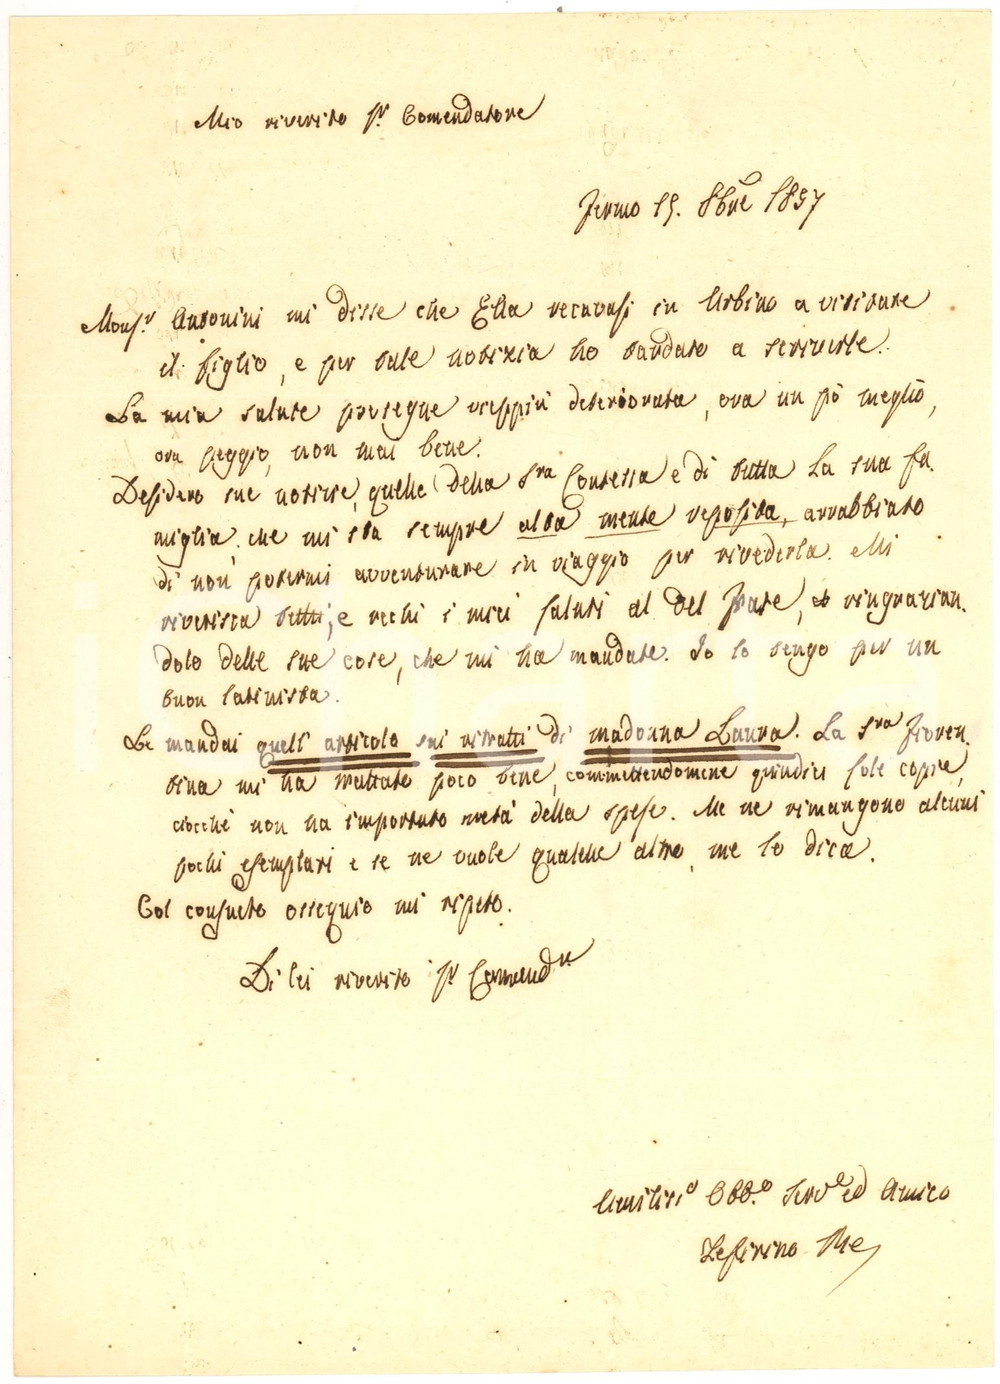 Mio riverito Sr. Comendatore
Fermo 15. 8bre 1857
Monsr. Antonini mi disse che Ella recavasi in Urbino a visitare
il figlio, e per tale notizia ho tardato a scriverle.
La mia salute prosegue vieppiù deteriorata, ora un pò meglio,
ora peggio, non mai bene.
Desidero sue notizie, quelle della Sra Contessa e di tutta la sua fa-
miglia, che mi sta sempre alta mente reposita, arrabbiato
di non potermi avventurare in viaggio per rivederla. Mi
riverisca tutti, e rechi i miei saluti al Del Frate, ringrazian-
dolo delle sue cose, che mi ha mandate. Io lo tengo per un
buon latinista.
Le mandai quell' articolo sui ritratti di madonna Laura. La Sra Fioren-
tina mi ha trattato poco bene, commettendomene quindici sole copie,
ciocchè non ha importato metà della spesa. Me ne rimangono alcuni
pochi esemplari e se ne vuole qualche altro, me lo dica.
Col consueto ossequio mi ripeto.
Di lei riverito Sr. Comendre
Umilisso Obbo. Serve ed Amico
Zefirino Re